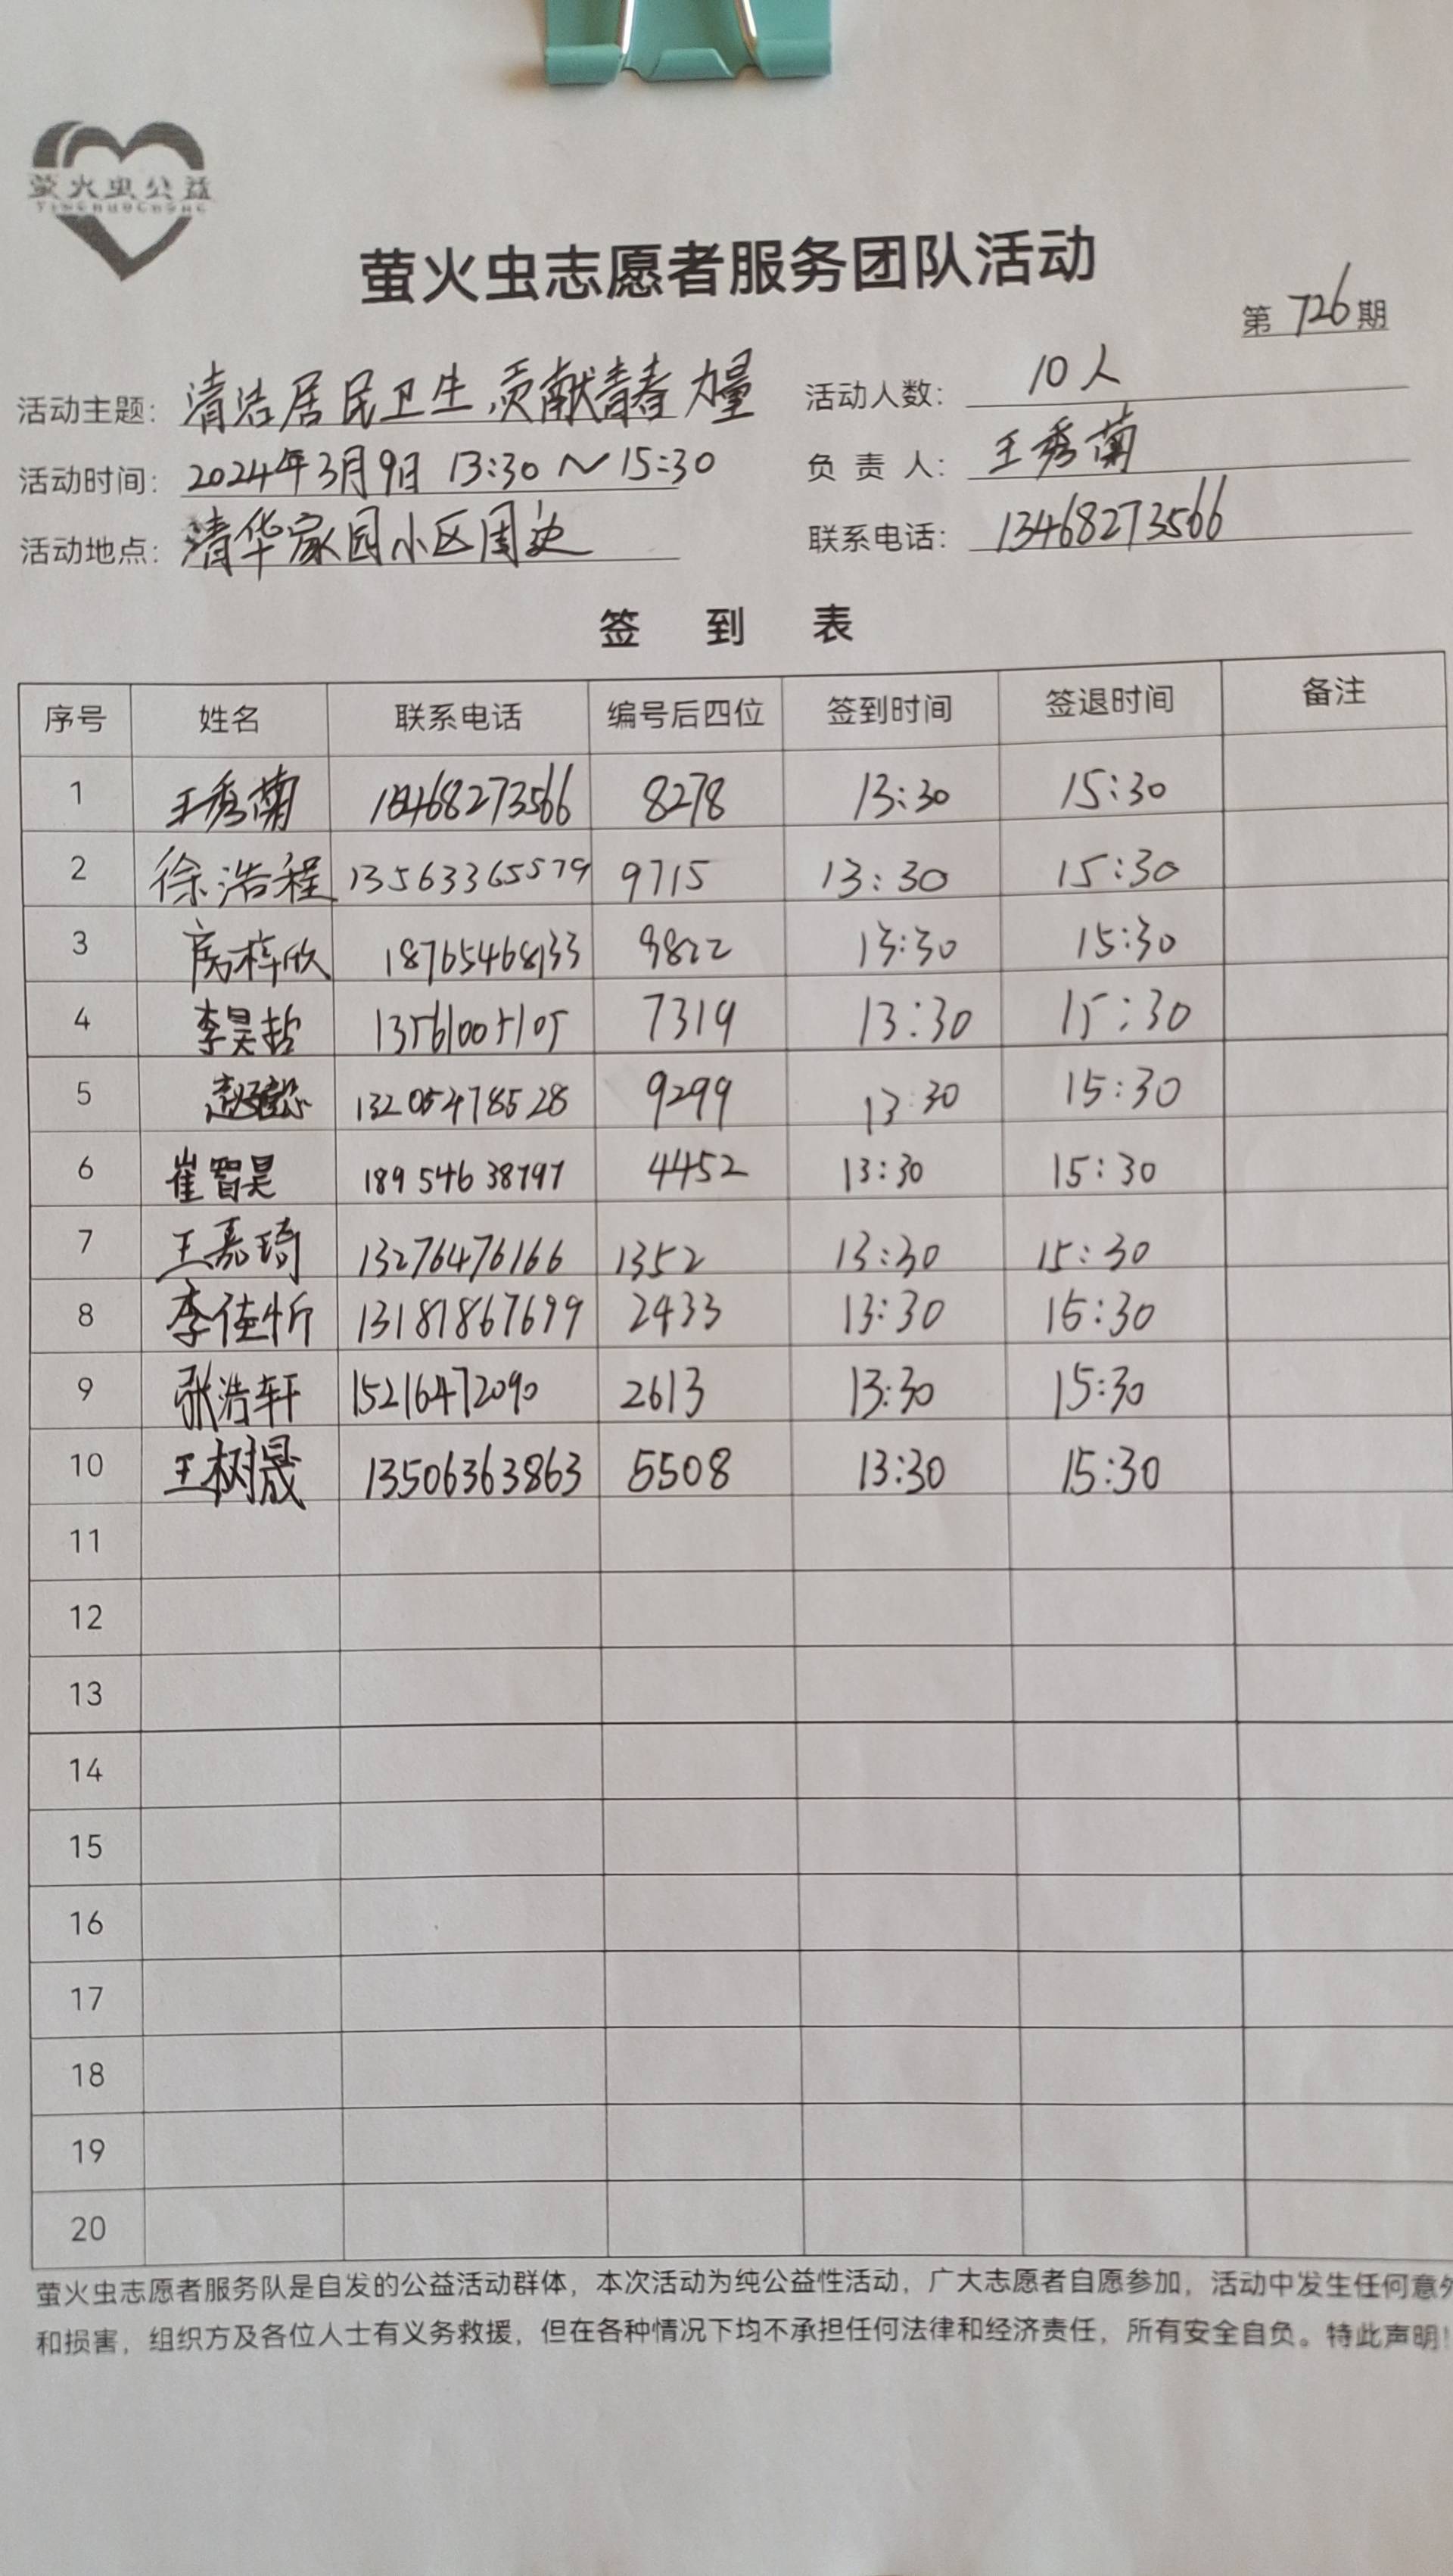 萤火虫公益
YINGHUOCHONG
萤火虫志愿者服务团队活动
第 726 期
活动主题：清洁居民卫生,贡献青春力量 活动人数：10人
活动时间：2024年3月9日 13:30～15:30 负责人：王秀菊
活动地点：清华家园小区周边 联系电话：13468273566
签到表
序号 姓名 联系电话 编号后四位 签到时间 签退时间 备注
1 王秀菊 13468273566 8278 13:30 15:30
2 徐浩程 13563365579 9715 13:30 15:30
3 房梓欣 18765468133 9822 13:30 15:30
4 李昊哲 13561005105 7319 13:30 15:30
5 13205478528 9299 13:30 15:30
6 崔智昊 18954638797 4452 13:30 15:30
7 王嘉琦 13276476166 1352 13:30 15:30
8 李佳忻 13181867699 2433 13:30 15:30
9 张浩轩 15216472090 2613 13:30 15:30
10 王树晟 13506363863 5508 13:30 15:30
11
12
13
14
15
16
17
18
19
20
萤火虫志愿者服务队是自发的公益活动群体，本次活动为纯公益性活动，广大志愿者自愿参加，活动中发生任何意外
和损害，组织方及各位人士有义务救援，但在各种情况下均不承担任何法律和经济责任，所有安全自负。特此声明！